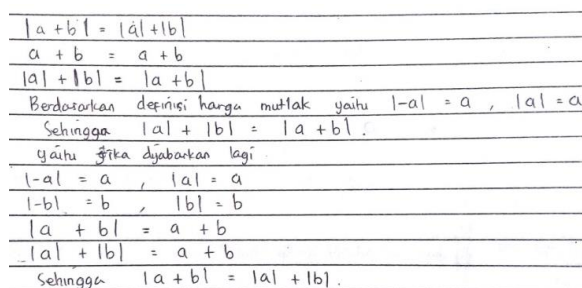 |a + b| = |a| + |b|
a + b = a + b
|a| + |b| = |a + b|
Berdasarkan definisi harga mutlak yaitu |-a| = a , |a| = a
Sehingga |a| + |b| = |a + b| .
yaitu jika dijabarkan lagi
|-a| = a , |a| = a
|-b| = b , |b| = b
|a + b| = a + b
|a| + |b| = a + b
Sehingga |a + b| = |a| + |b| .